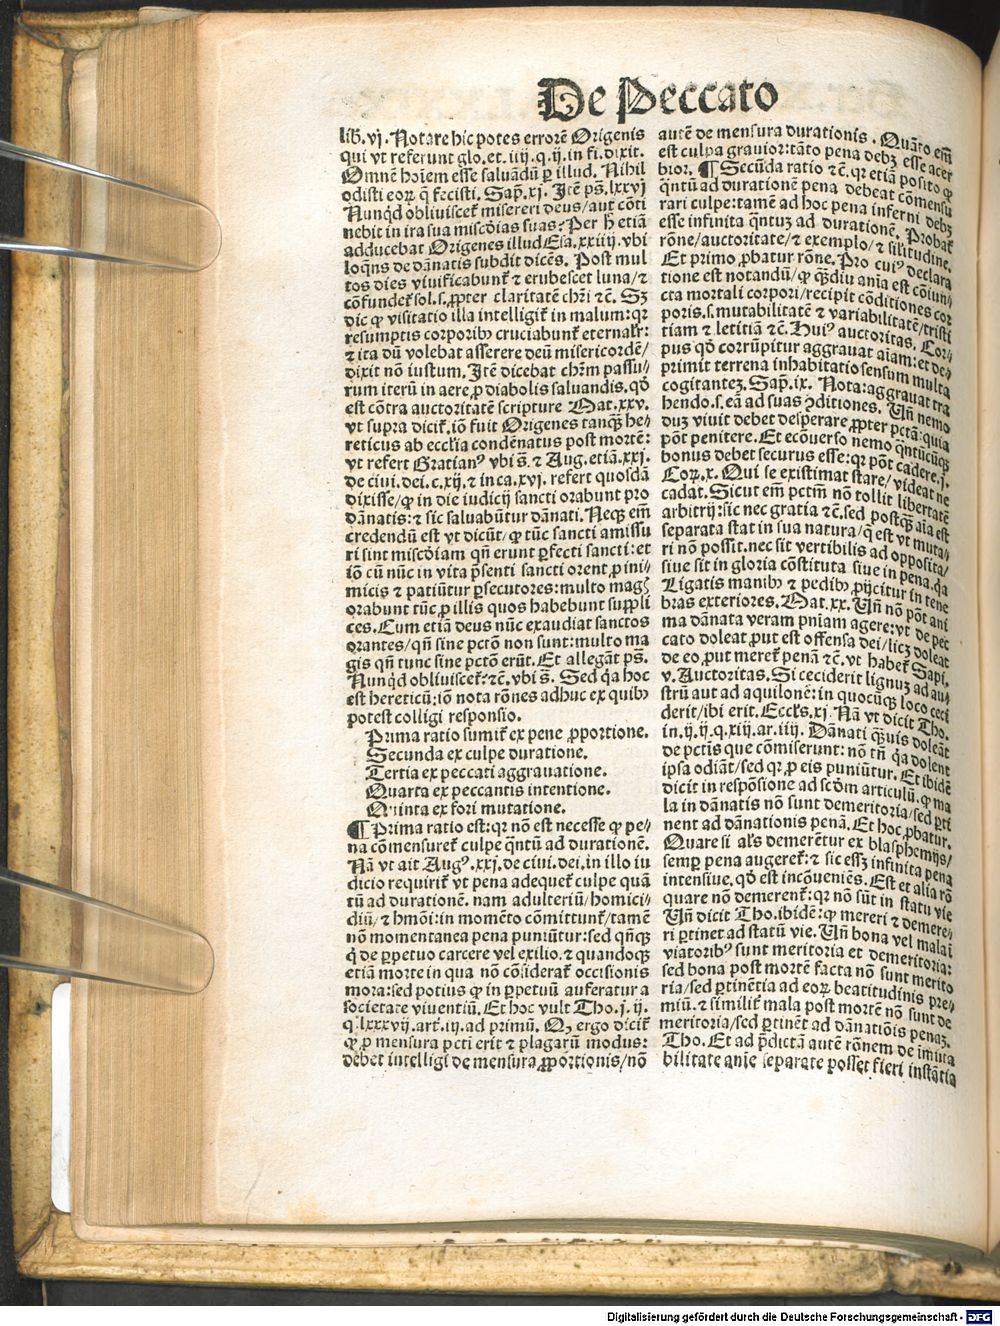 De Peccato
lib. vj. Notare hic potes errorē Origenis
qui vt referunt glo. et. iiij. q. ij. in fi. dixit.
Omnē hoīem esse saluādū ꝑ illud. Nihil
odisti eoꝝ q̄ fecisti. Sap̄. xj. Itē ps̄. lxxvj
Nunq̇d obliuiscet᷑ misereri deus/aut cōti
nebit in ira sua miscd̄ias suas? Per h̄ etiā
adducebat Origenes illud Esa. xxiiij. vbi
loq̄ns de dānatis subdit dicēs. Post mul
tos dies viuificabunt᷑ ⁊ erubescet luna/⁊
cōfundet᷑ sol. s. ꝓpter claritatē chr̄i ⁊c̄. Sꝫ
dic ꝙ visitatio illa intelligit᷑ in malum: qꝛ
resumptis corporibꝫ cruciabunt᷑ eternalr̄:
⁊ ita dū volebat asserere deū misericordē/
dixit nō iustum. Itē dicebat chr̄m passu/
rum iterū in aere ꝓ diabolis saluandis. qd̄
est cōtra auctoritatē scripture Mat. xxv.
vt supra dicit᷑. iō fuit Origenes tanqꝫ he-
reticus ab eccl̄ia condēnatus post mortē:
vt refert Gratianꝰ vbi s̄. ⁊ Aug. etiā. xxj.
de ciui. dei. c. xij. ⁊ in ca. xvj. refert quosdā
dixisse/ꝙ in die iudicij sancti orabunt pro
dānatis: ⁊ sic saluabūtur dānati. Neqꝫ em̄
credendū est vt dicūt/ꝙ tūc sancti amissu
ri sint miscd̄iam qn̄ erunt ꝑfecti sancti: et
iō cū nūc in vita p̄senti sancti orent ꝓ ini-
micis ⁊ patiūtur ꝑsecutores: multo mag̉
orabunt tūc ꝓ illis quos habebunt suppli
ces. Cum etiā deus nūc exaudiat sanctos
orantes/qn̄ sine pctō non sunt: multo ma
gis qn̄ tunc sine pctō erūt. Et allegāt ps̄.
Nunq̇d obliuiscet᷑? ⁊c̄. vbi s̄. Sed q̇a hoc
est hereticū: iō nota rōnes adhuc ex quibꝫ
potest colligi responsio.
Prima ratio sumit᷑ ex pene ꝓportione.
Secunda ex culpe duratione.
Tertia ex peccati aggrauatione.
Quarta ex peccantis intentione.
Quinta ex fori mutatione.
¶ Prima ratio est: qꝛ nō est necesse ꝙ pe/
na cōmensuret᷑ culpe q̄ntū ad durationē.
Nā vt ait Augꝰ. xxj. de ciui. dei. in illo iu
dicio requirit᷑ vt pena adequet᷑ culpe quā
tū ad durationē. nam adulteriū/homici-
diū/⁊ hmōi: in momēto cōmittunt᷑/tamē
nō momentanea pena puniūtur: sed qn̄qꝫ
q̇ de ꝑpetuo carcere vel exilio. ⁊ quandoqꝫ
etiā morte in qua nō cōsiderat᷑ occisionis
mora: sed potius ꝙ in ꝑpetuū auferatur a
societate viuentiū. Et hoc vult Tho. j. ij.
q. lxxxvij. art᷑. iij. ad primū. Qꝫ ergo dicit᷑
ꝙ ꝓ mensura pcti erit ⁊ plagarū modus:
debet intelligi de mensura ꝓportionis/nō
autē de mensura durationis. Quāto em̄
est culpa grauior: tāto pena debꝫ esse acer
bior. ¶ Secūda ratio ⁊c̄. qꝛ etiā posito ꝙ
q̄ntū ad durationē pena debeat cōmensu
rari culpe: tamē ad hoc pena inferni debꝫ
esse infinita q̄ntuꝫ ad durationē. Probat᷑
rōne/auctoritate/⁊ exemplo/⁊ silitudine.
Et primo ꝓbatur rōne. Pro cuiꝰ declara
tione est notandū/ꝙ qꝫdiu anīa est cōiun/
cta mortali corpori/recipit cōditiones cor
poris. s. mutabilitatē ⁊ variabilitatē/tristi
tiam ⁊ letitiā ⁊c̄. Huiꝰ auctoritas. Cor/
pus qd̄ corrūpitur aggrauat aīam: et de/
primit terrena inhabitatio sensum multa
cogitanteꝫ. Sap̄. ix. Nota: aggrauat tra
hendo. s. eā ad suas ꝯditiones. Vn̄ nemo
duꝫ viuit debet desperare ꝓpter pctā: quia
pōt penitere. Et ecōuerso nemo q̄ntūcūqꝫ
bonus debet securus esse: qꝛ pōt cadere. j.
Coꝝ. x. Qui se existimat stare/videat ne
cadat. Sicut em̄ pctm̄ nō tollit libertatē
arbitrij: sic nec gratia ⁊c̄. sed postqꝫ aīa est
separata stat in sua natura/q̄ est vt muta/
ri nō possit. nec sit vertibilis ad opposita/
siue sit in gloria cōstituta siue in pena. q̇a
Ligatis manibꝫ ⁊ pedibꝫ ꝓijcitur in tene
bras exteriores. Mat. xx. Vn̄ nō pōt ani
ma dānata veram pn̄iam agere: vt de pec
cato doleat ꝓut est offensa dei/licꝫ doleat
de eo ꝓut meret᷑ penā ⁊c̄. vt habet᷑ Sapi.
v. Auctoritas. Si ceciderit lignuꝫ ad au/
strū aut ad aquilonē: in quocūqꝫ loco ceci
derit/ibi erit. Eccl̄s. xj. Nā vt dicit Tho.
in. ij. ij. q. xiij. ar. iiij. Dānati qꝫuis doleāt
de pctīs que cōmiserunt: nō tn̄ q̇a dolent
ipsa odiāt/sed qꝛ ꝓ eis puniūtur. Et ibidē
dicit in respōsione ad scd̄m articulū. ꝙ ma
la in dānatis nō sunt demeritoria/sed ꝑti
nent ad dānationis penā. Et hoc ꝓbatur.
Quare si als̄ demerētur ex blasphemijs/
semꝑ pena augeret᷑: ⁊ sic esseꝫ infinita pena
intensiue. qd̄ est incōueniēs. Est et alia rō
quare nō demerent᷑: qꝛ nō sūt in statu vie
Vn̄ dicit Tho. ibidē: ꝙ mereri ⁊ demere/
ri ꝑtinet ad statū vie. Vn̄ bona vel mala ī
viatoribꝰ sunt meritoria et demeritoria:
sed bona post mortē facta nō sunt merito
ria/sed ꝑtinētia ad eoꝝ beatitudinis pre/
miū. ⁊ similit᷑ mala post mortē nō sunt de
meritoria/sed ꝑtinēt ad dānatiōis penaꝫ.
Tho. Et ad p̄dictā autē rōnem de imuta
bilitate anīe separate posset fieri instātia
Digitalisierung gefördert durch die Deutsche Forschungsgemeinschaft - DFG